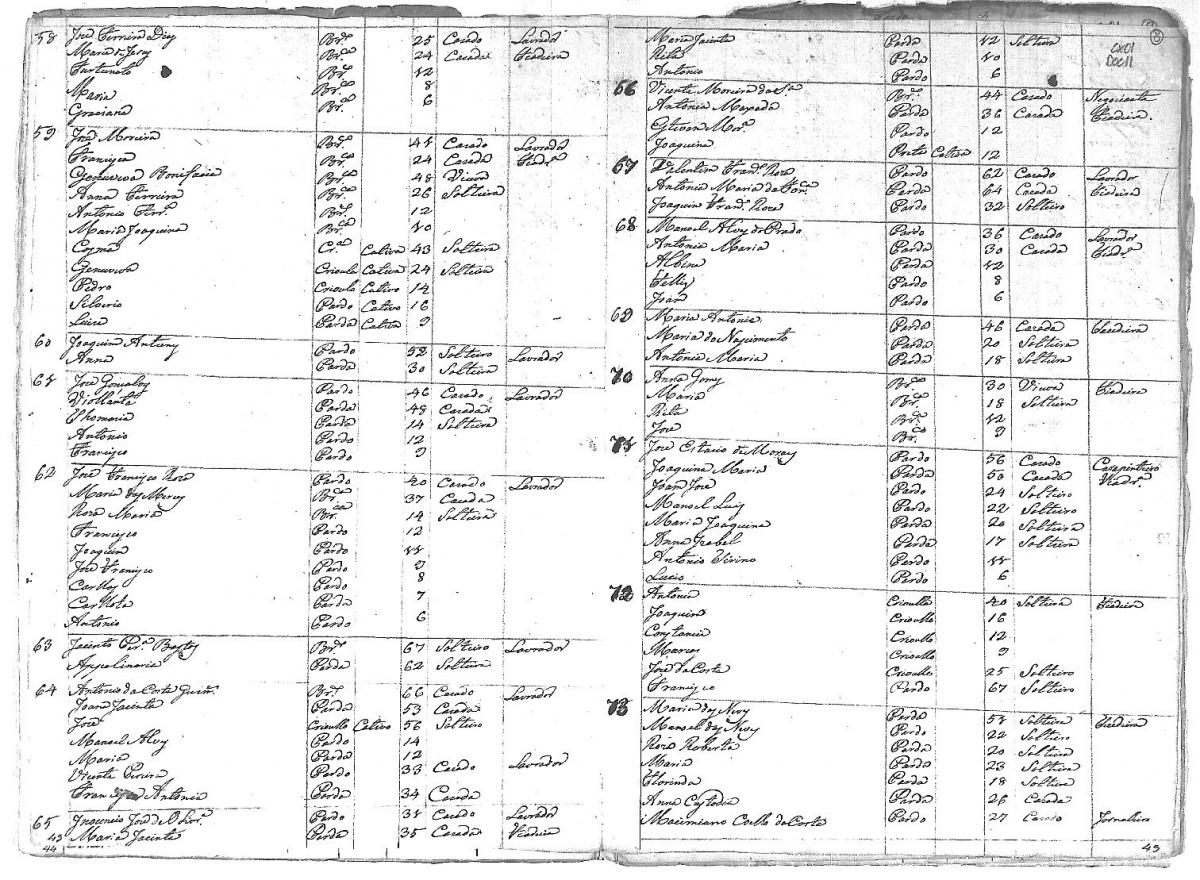 58 José Ferreira Dias Br.co 25 Casado Lavrador
Maria de Jesus Br.ca 24 Casada Fiadeira
Furtunato Br.co 12
Maria Br.ca 8
Graciana Br.ca 6
59 José Moreira Br.co 45 Casado Lavrador
Francisca Br.ca 24 Casada Fiadr.a
Genuveva Bonifacia Br.ca 48 Viuva
Anna Ferreira Br.ca 26 Solteira
Antonio Ferr.a Br.co 12
Maria Joaquina Br.ca 10
Cosma Cativa 43 Solteira
Genuveva Crioula Cativa 24 Solteira
Pedro Crioulo Cativo 14
Silverio Pardo Cativo 16
Luiza Parda Cativa 9
60 Joaquim Antunes Pardo 52 Solteiro Lavrador
Anna Parda 30 Solteira
61 José Gonçalves Pardo 46 Casado Lavrador
Viollanta Parda 48 Casada
Thomazia Parda 14 Solteira
Antonio Pardo 12
Francisco Pardo 9
62 José Francisco Roza Pardo 40 Casado Lavrador
Maria das Merces Br.ca 37 Casada
Roza Maria Br.ca 14 Solteira
Francisco Pardo 12
Joaquim Pardo 11
José Francisco Pardo 9
Carllos Pardo 8
Carllota Parda 7
Antonio Pardo 6
63 Jacinto Per.a Bastos Br.co 67 Solteiro Lavrador
Appolinaria Parda 62 Solteira
64 Antonio da Costa Guim.s Br.co 66 Casado Lavrador
Joana Jacinta Parda 53 Casada
José Crioullo Cativo 56 Solteiro
Manoel Alves Pardo 14
Maria Parda 12
Vicente Pereira Pardo 33 Casado Lavrador
Francisca Antonia Parda 34 Casada
65 Inocencio José de Olivr.a Pardo 31 Casado Lavrador
43 Maria Jacinta Parda 35 Casada Fiadeira
44
Maria Jacinta Parda 12 Solteira
Rita Parda 10
Antonio Pardo 6
CX01
Doc11
66 Vicente Moreira da S.a Br.co 44 Casado Negociante
Antonia Parda 36 Casada Fiadeira
Estevão Mor.a Pardo 12
Joaquina Preta Cativa 12
67 Valentim Frand.s Roza Pardo 62 Casado Lavrador
Antonia Maria da Parda 64 Casada Fiadeira
Joaquim Frand.s Roza Pardo 32 Solteiro
68 Manoel Alves do Prado Pardo 36 Casado Lavrador
Antonia Maria Parda 30 Casada Fiadr.a
Albina Parda 12
Felles Pardo 8
Joam Pardo 6
69 Maria Antonia Parda 46 Casada Fiadeira
Maria do Nascimento Parda 20 Solteira
Antonia Maria Parda 18 Solteira
70 Anna Gomes Br.ca 30 Viuva Fiadeira
Maria Br.ca 18 Solteira
Rita Br.ca 12
José Br.co 9
71 José Estacio de Moraes Pardo 56 Casado Carapinteiro
Joaquina Maria Parda 50 Casada Fiadr.a
Joam José Pardo 24 Solteiro
Manoel Luis Pardo 22 Solteiro
Maria Joaquina Parda 20 Solteira
Anna Izabel Parda 17 Solteira
Antonio Sirino Pardo 11
Lucio Pardo 6
72 Antonia Crioulla 40 Solteira Fiadeira
Joaquim Crioullo 16
Constancia Crioulla 12
Marcos Crioullo 9
José da Costa Crioullo 25 Solteiro
Francisco Pardo 67 Solteiro
73 Maria das Neves Parda 51 Solteira Fiadeira
Manoel das Neves Pardo 22 Solteiro
Roza Roberta Parda 20 Solteira
Maria Parda 23 Solteira
Florinda Parda 18 Solteira
Anna Custodia Parda 26 Casada
Maximiano da Costa Pardo 27 Casado Jornaleiro
43